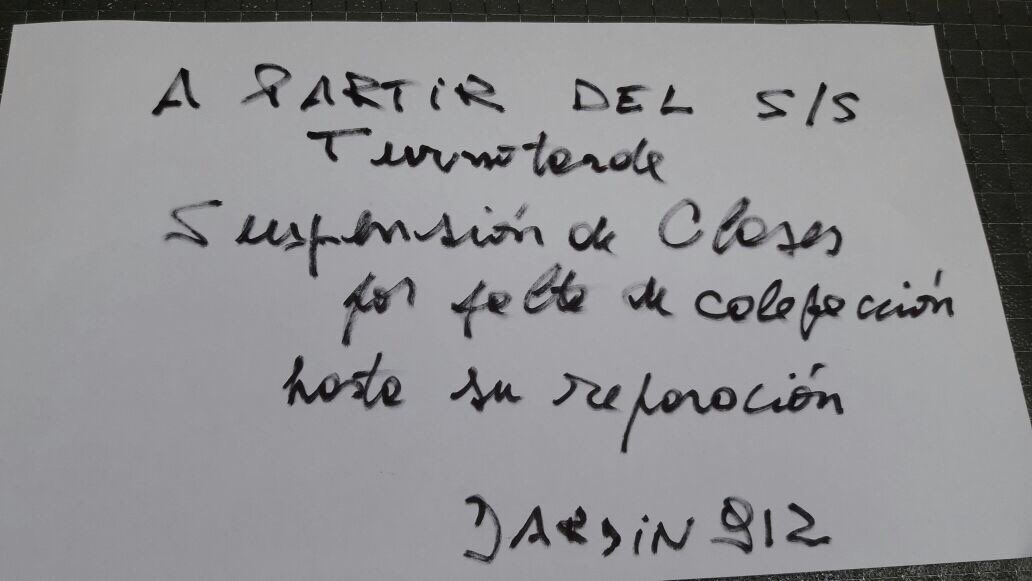 A PARTIR DEL 5/5
Turno tarde
Suspensión de Clases
por falta de calefacción
hasta su reparación
JARDIN 912